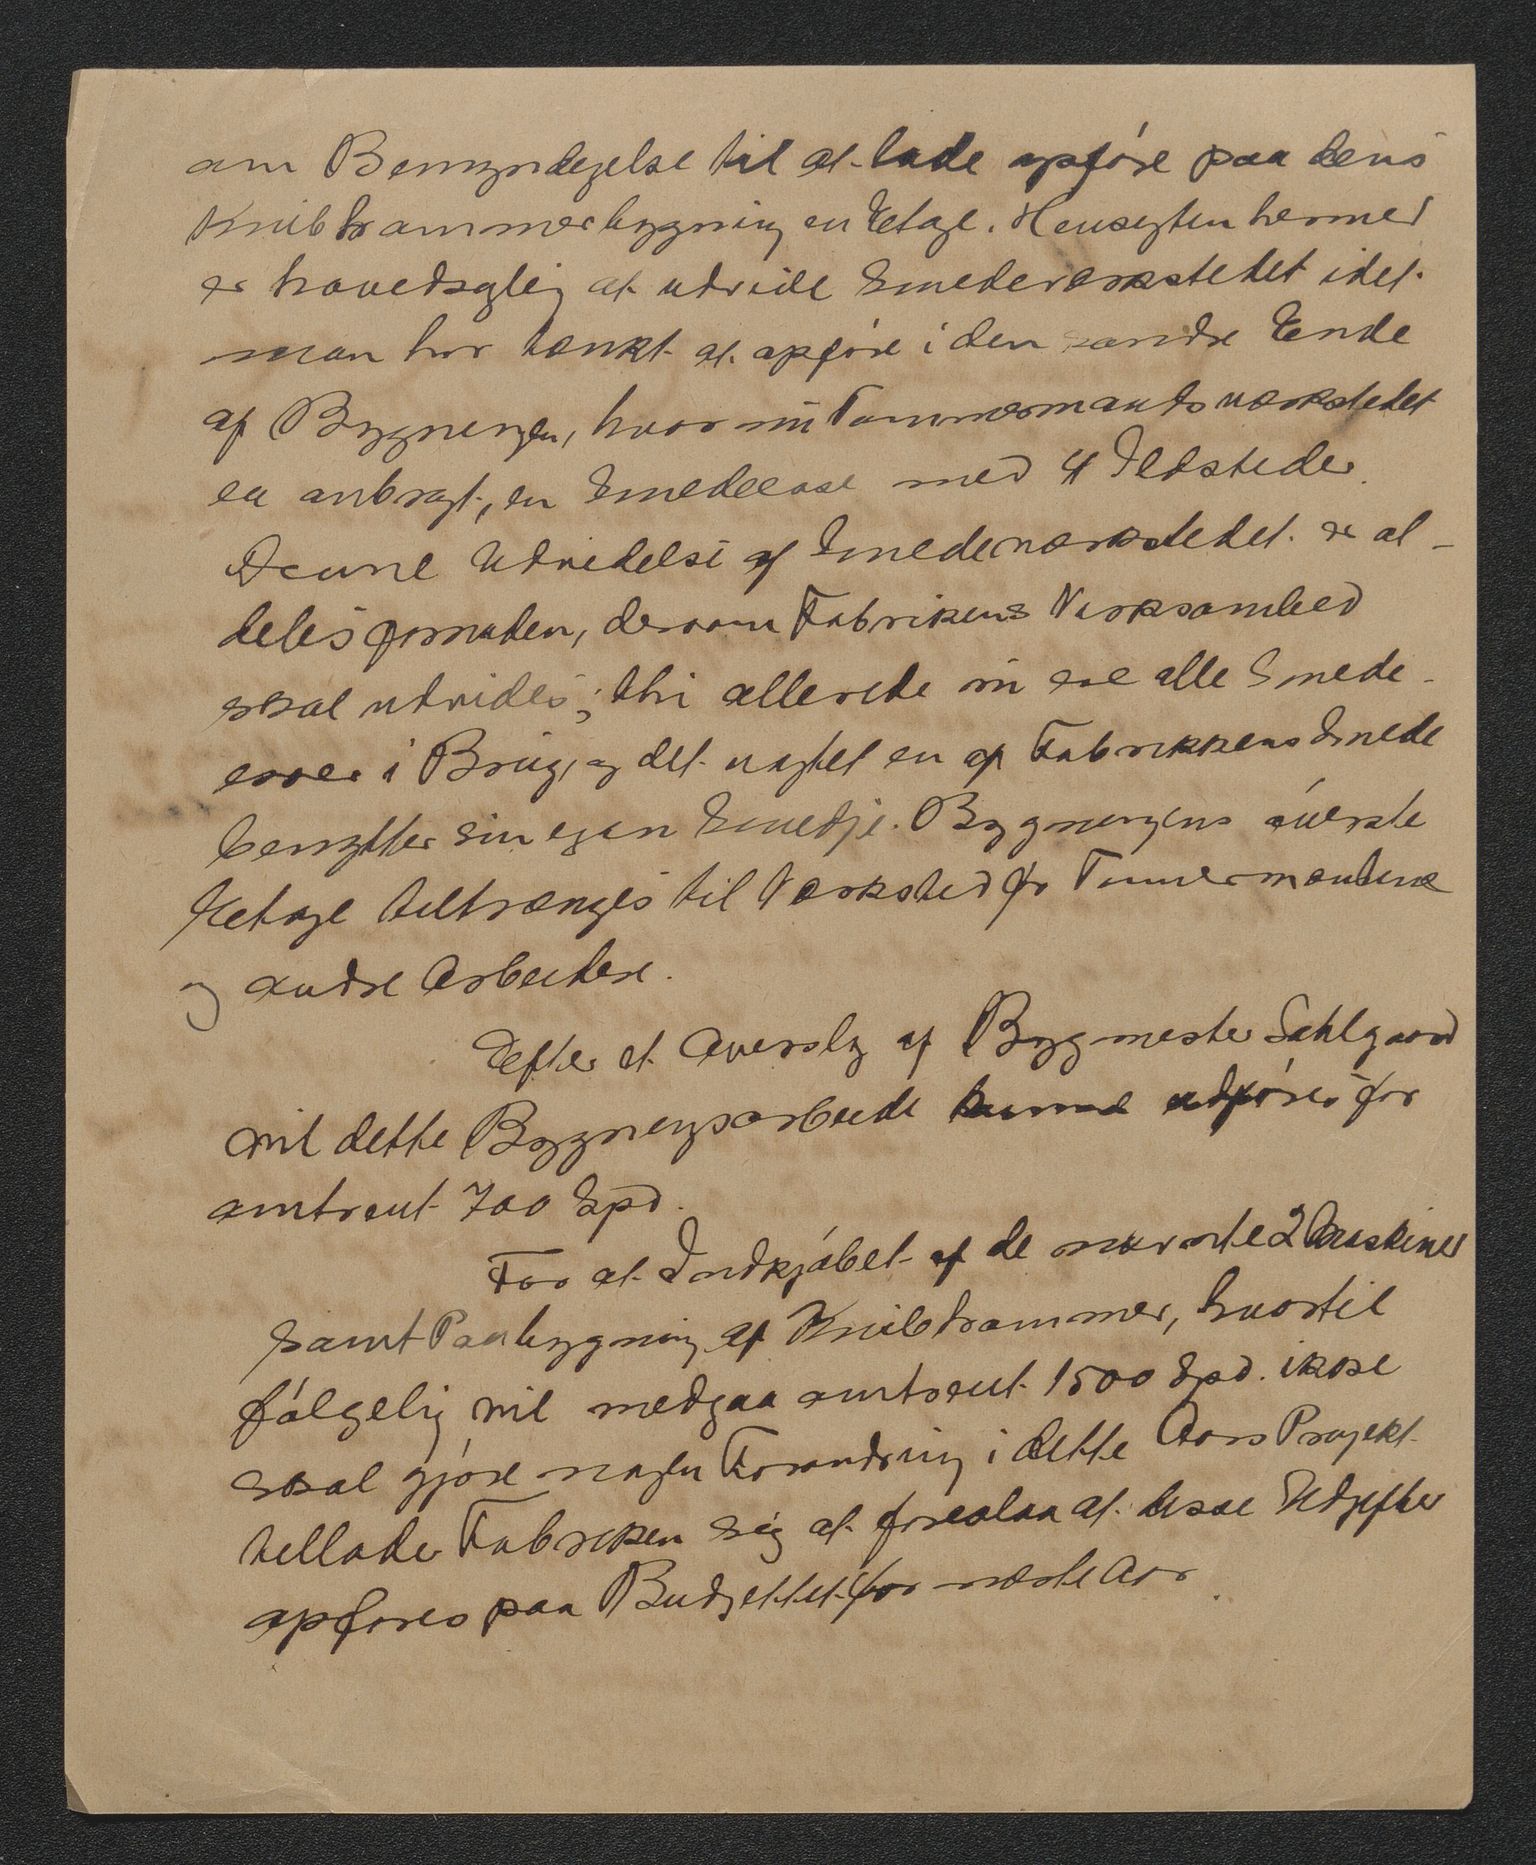 om Bemyndigelse til at lade opføre paa dens
Knibhammerbygning en Etage. Hensigten hermed
er hovedsaglig at udvide Smedeværkstedet idet
man har tænkt at opføre i den søndre Ende
af Bygningen, hvor nu Tømmermandsværkstedet
er anbragt, en Smedeesse med 4 Ildsteder.
Denne Udvidelse af Smedeværkstedet er al-
deles fornøden, dersom Fabrikens Virksomhed
skal udvides; thi allerede nu ere alle Smede-
esser i Brug, og det uagtet en af Fabrikkens Smede
benytter sin egen Smedje. Bygningens øverste
Etage tiltrænges til Værksted for Tømmermændene
og andre Arbeidere.
Efter et Overslag af Bygmester Sahlgaard
vil dette Bygningsarbeide kunne udføres for
omtrent 700 Spd.
For at Indkjøbet af de nævnte 2 Maskiner
samt Paabygning af Knibhammer, hvortil
følgelig vil medgaa omtrent 1500 Spd. ikke
skal gjøre nogen Forandring i dette Aars Projekt
tillader Fabriken sig at foreslaa at disse Udgifter
opføres paa Budgettet for næste Aar.